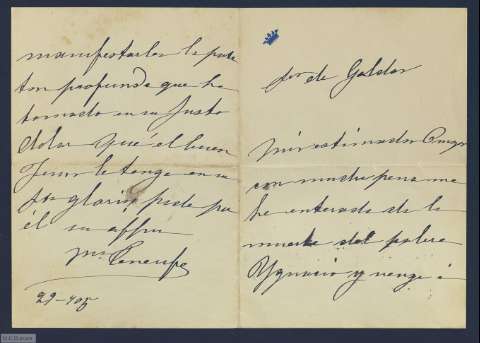 Sr de Galdos
Mi estimado Amigo
con mucha pena me
he enterado de la
muerte del pobre
Ygnacio y vengo á
manifestarles la parte
tan profunda que he
tomado en su justo
dolor Que el buen
Jesus le tenga en su
gloria, pide por
él su affma
29-905